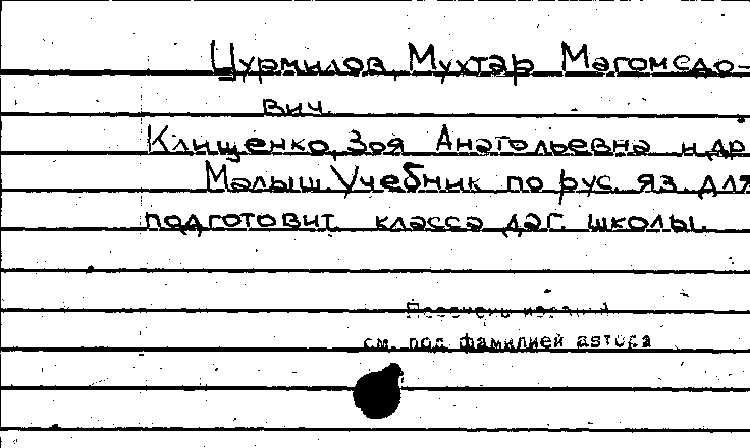 Цурмилов, Мухтар Магомедо-
вич.
Клищенко, Зоя Анатольевна и др.
Малыш. Учебник по рус. яз. для
подготовит. класса даг. школы.
Перечень изданий
см. под фамилией автора